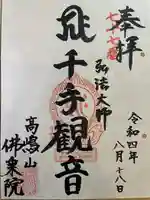 奉拝
令和四年
八月十八日
弘法大師
千手観音
高嶋山
佛乗院